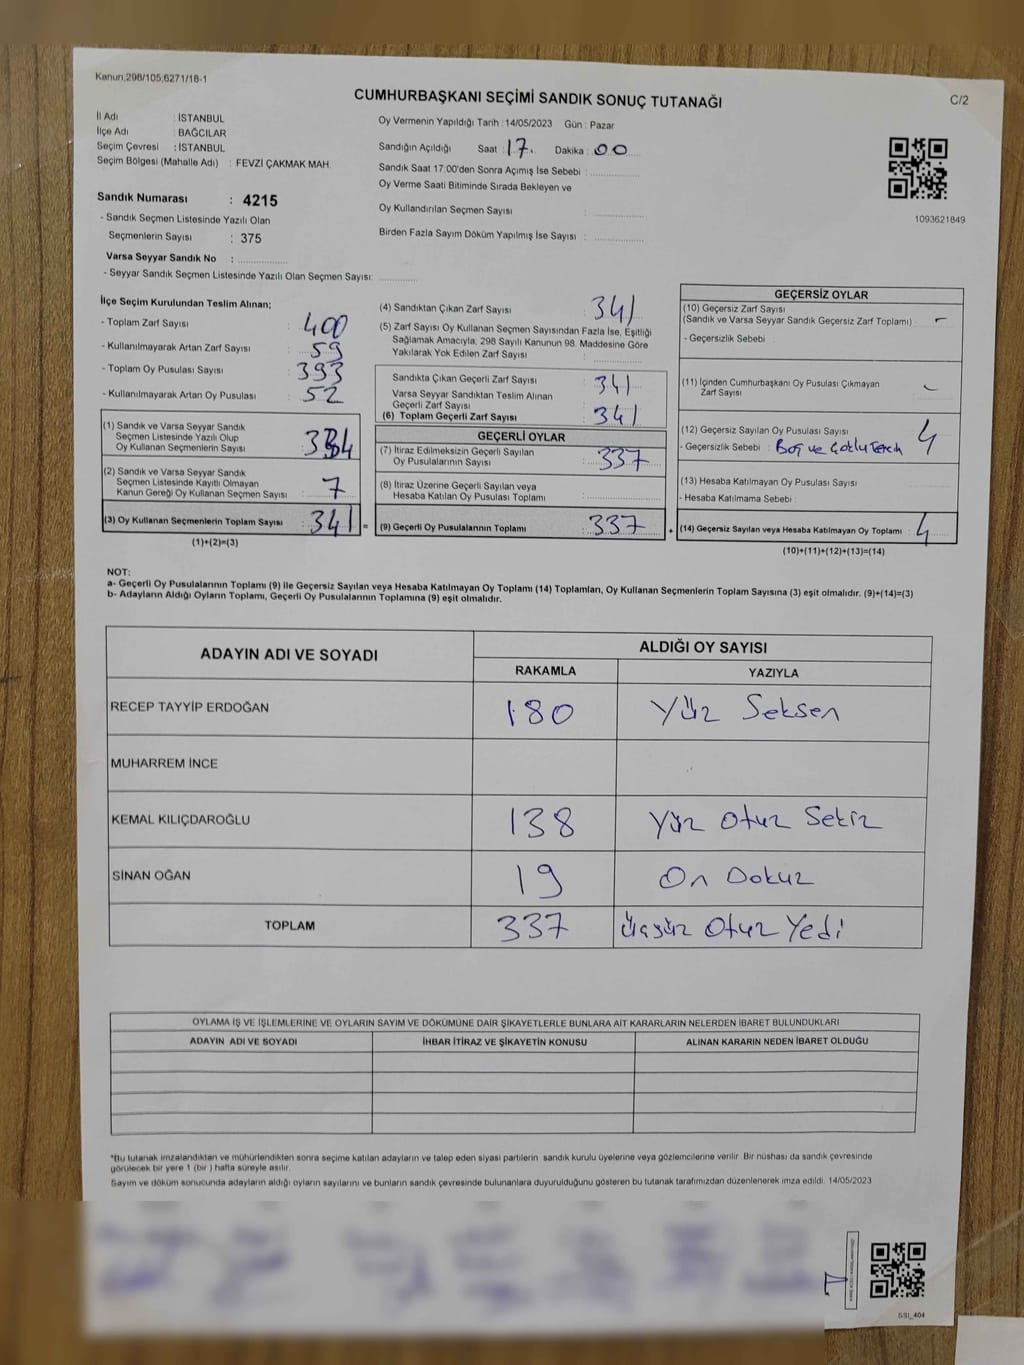 Kanun:298/105;6271/18-1
CUMHURBAŞKANI SEÇİMİ SANDIK SONUÇ TUTANAĞI
C/2
İl Adı : İSTANBUL
İlçe Adı : BAĞCILAR
Seçim Çevresi : İSTANBUL
Seçim Bölgesi (Mahalle Adı) : FEVZİ ÇAKMAK MAH.
Sandık Numarası : 4215
- Sandık Seçmen Listesinde Yazılı Olan
Seçmenlerin Sayısı : 375
Varsa Seyyar Sandık No :
- Seyyar Sandık Seçmen Listesinde Yazılı Olan Seçmen Sayısı:
Oy Vermenin Yapıldığı Tarih : 14/05/2023 Gün : Pazar
Sandığın Açıldığı Saat : 17 Dakika : 00
Sandık Saat 17:00'den Sonra Açımış İse Sebebi :
Oy Verme Saati Bitiminde Sırada Bekleyen ve
Oy Kullandırılan Seçmen Sayısı :
Birden Fazla Sayım Döküm Yapılmış İse Sayısı :
1093621849
İlçe Seçim Kurulundan Teslim Alınan;
- Toplam Zarf Sayısı : 400
- Kullanılmayarak Artan Zarf Sayısı : 59
- Toplam Oy Pusulası Sayısı : 393
- Kullanılmayarak Artan Oy Pusulası : 52
(1) Sandık ve Varsa Seyyar Sandık
Seçmen Listesinde Yazılı Olup
Oy Kullanan Seçmenlerin Sayısı : 334
(2) Sandık ve Varsa Seyyar Sandık
Seçmen Listesinde Kayıtlı Olmayan
Kanun Gereği Oy Kullanan Seçmen Sayısı : 7
(3) Oy Kullanan Seçmenlerin Toplam Sayısı : 341 =
(1)+(2)=(3)
(4) Sandıktan Çıkan Zarf Sayısı 341
(5) Zarf Sayısı Oy Kullanan Seçmen Sayısından Fazla İse, Eşitliği
Sağlamak Amacıyla, 298 Sayılı Kanunun 98. Maddesine Göre
Yakılarak Yok Edilen Zarf Sayısı :
Sandıkta Çıkan Geçerli Zarf Sayısı : 341
Varsa Seyyar Sandıktan Teslim Alınan
Geçerli Zarf Sayısı :
(6) Toplam Geçerli Zarf Sayısı : 341
GEÇERLİ OYLAR
(7) İtiraz Edilmeksizin Geçerli Sayılan
Oy Pusulalarının Sayısı : 337
(8) İtiraz Üzerine Geçerli Sayılan veya
Hesaba Katılan Oy Pusulası Toplamı :
(9) Geçerli Oy Pusulalarının Toplamı : 337 +
GEÇERSİZ OYLAR
(10) Geçersiz Zarf Sayısı
(Sandık ve Varsa Seyyar Sandık Geçersiz Zarf Toplamı) : -
- Geçersizlik Sebebi :
(11) İçinden Cumhurbaşkanı Oy Pusulası Çıkmayan
Zarf Sayısı : -
(12) Geçersiz Sayılan Oy Pusulası Sayısı : 4
- Geçersizlik Sebebi : Boş ve Çoklu Tercih
(13) Hesaba Katılmayan Oy Pusulası Sayısı :
- Hesaba Katılmama Sebebi :
(14) Geçersiz Sayılan veya Hesaba Katılmayan Oy Toplamı : 4
(10)+(11)+(12)+(13)=(14)
NOT:
a- Geçerli Oy Pusulalarının Toplamı (9) ile Geçersiz Sayılan veya Hesaba Katılmayan Oy Toplamı (14) Toplamları, Oy Kullanan Seçmenlerin Toplam Sayısına (3) eşit olmalıdır. (9)+(14)=(3)
b- Adayların Aldığı Oyların Toplamı, Geçerli Oy Pusulalarının Toplamına (9) eşit olmalıdır.
ADAYIN ADI VE SOYADI
ALDIĞI OY SAYISI
RAKAMLA YAZIYLA
RECEP TAYYİP ERDOĞAN 180 Yüz Seksen
MUHARREM İNCE
KEMAL KILIÇDAROĞLU 138 Yüz Otuz Sekiz
SİNAN OĞAN 19 On Dokuz
TOPLAM 337 Üçyüz Otuz Yedi
OYLAMA İŞ VE İŞLEMLERİNE VE OYLARIN SAYIM VE DÖKÜMÜNE DAİR ŞİKAYETLERLE BUNLARA AİT KARARLARIN NELERDEN İBARET BULUNDUKLARI
ADAYIN ADI VE SOYADI İHBAR İTİRAZ VE ŞİKAYETİN KONUSU ALINAN KARARIN NEDEN İBARET OLDUĞU
*Bu tutanak imzalandıktan ve mühürlendikten sonra seçime katılan adayların ve talep eden siyasi partilerin sandık kurulu üyelerine veya gözlemcilerine verilir. Bir nüshası da sandık çevresinde
görülecek bir yere 1 (bir) hafta süreyle asılır.
Sayım ve döküm sonucunda adayların aldığı oyların sayılarını ve bunların sandık çevresinde bulunanlara duyurulduğunu gösteren bu tutanak tarafımızdan düzenlenerek imza edildi. 14/05/2023
SSI_404